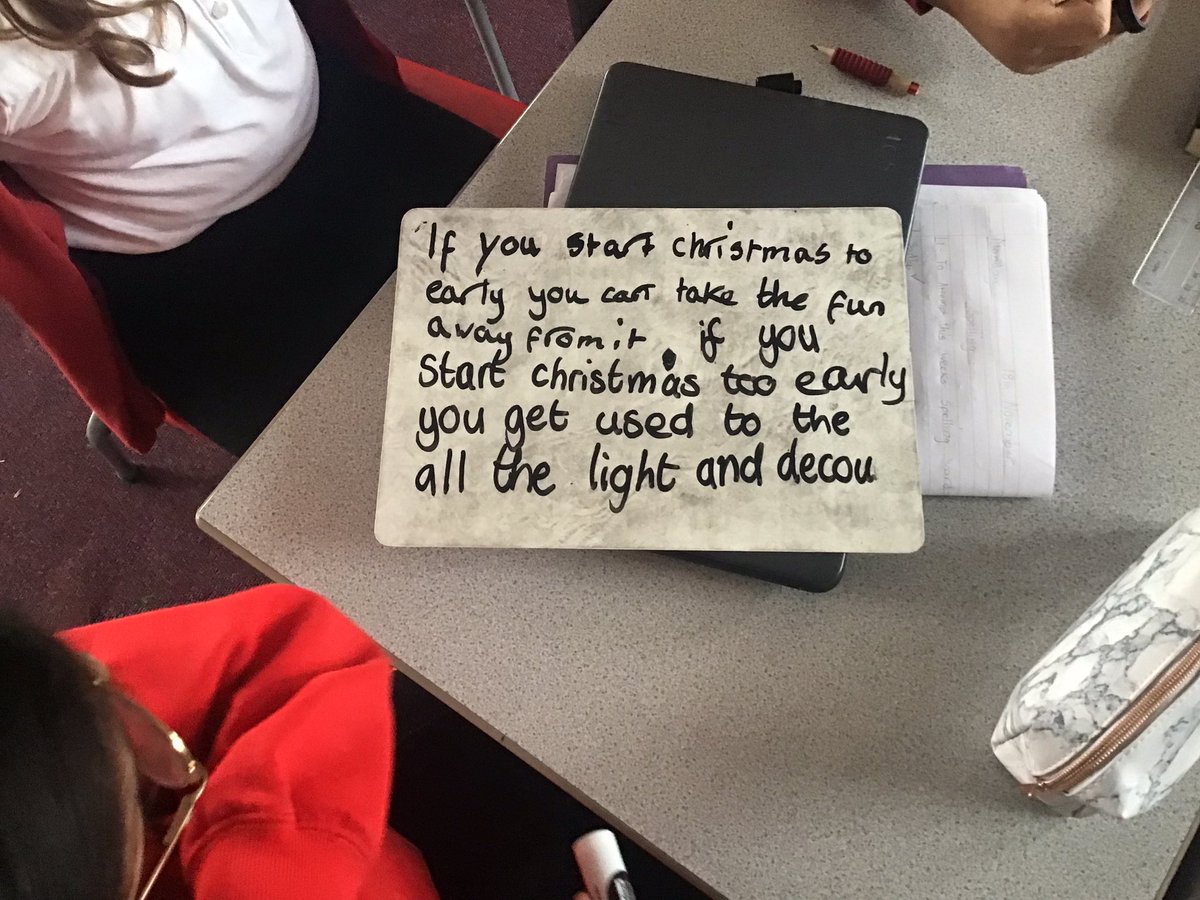 If you start christmas to
early you can take the fun
away from it, if you
start christmas too early
you get used to the
all the light and decou